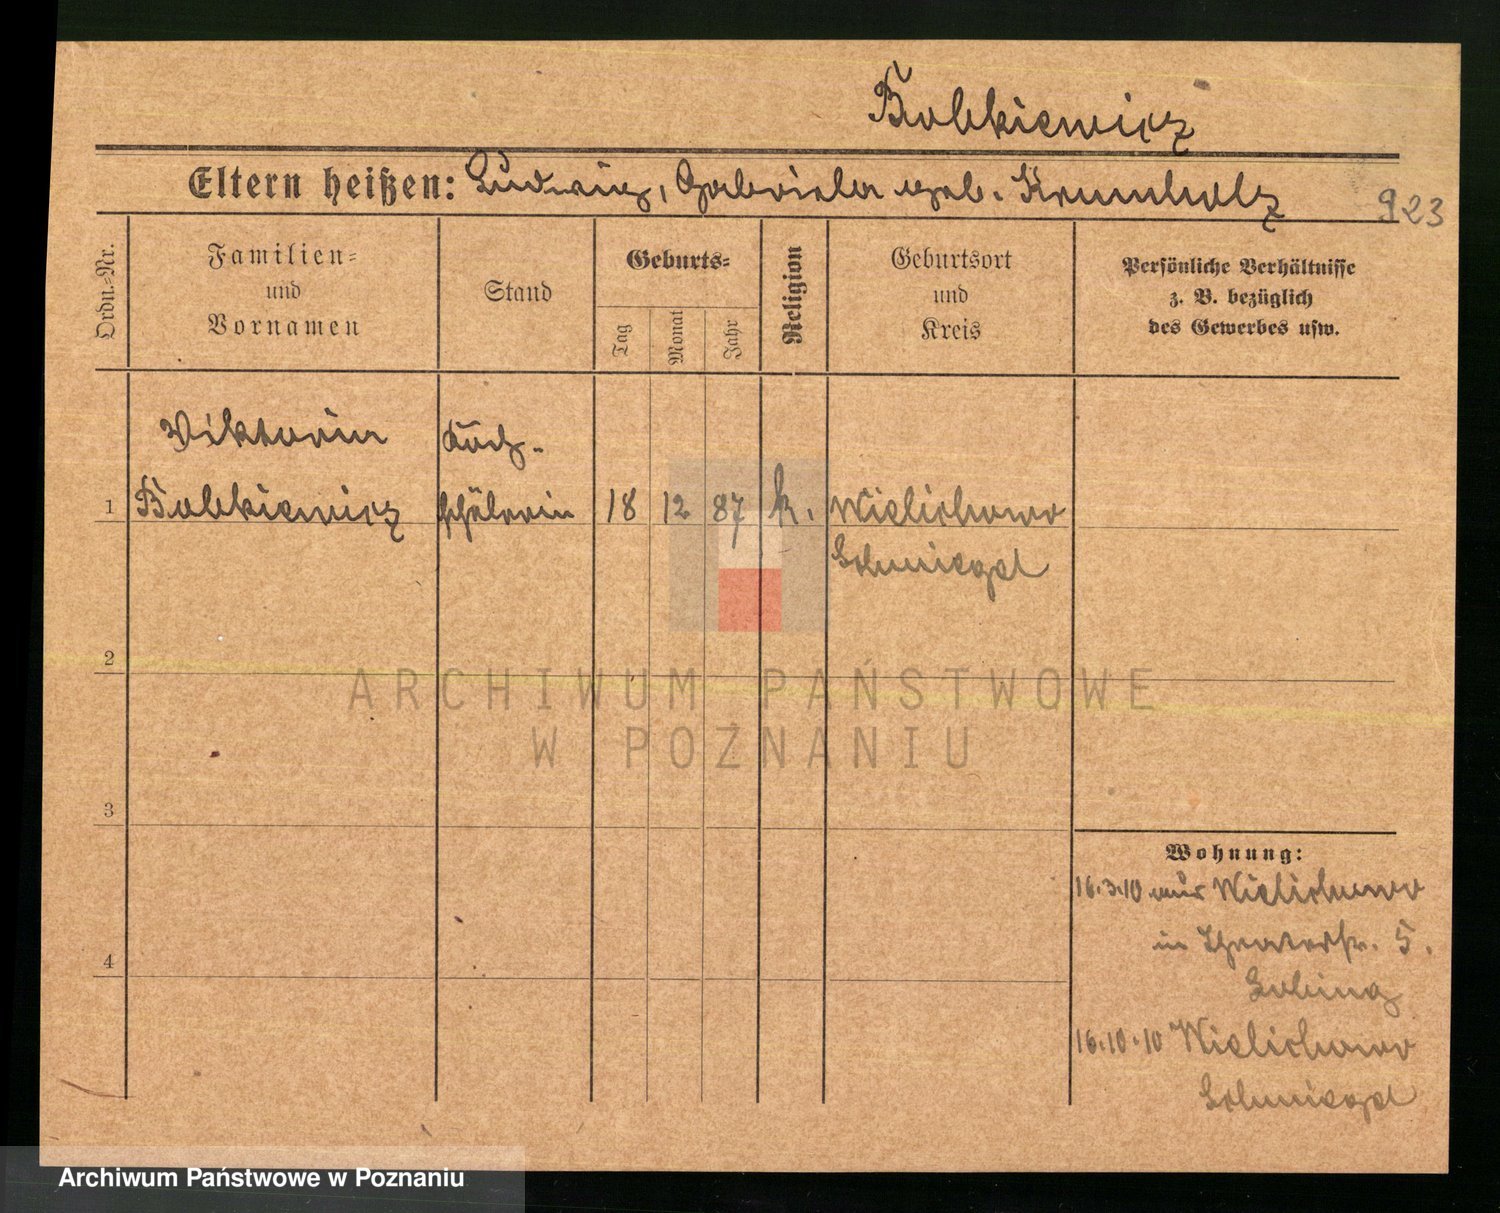 Bobkiewicz
Eltern heißen: Ludwig, Gabriela geb. Krumholz
923
Ordn.-Nr.
Familien-
und
Vornamen
Stand
Geburts-
Tag
Monat
Jahr
Religion
Geburtsort
und
Kreis
Persönliche Verhältnisse
z. B. bezüglich
des Gewerbes usw.
Viktoria Koch-
1 Bobkiewicz schülerin 18 12 87 k. Wielichowo
Schmiegel
2
ARCHIWUM PAŃSTWOWE
W POZNANIU
3
Wohnung:
16.3.10 aus Wielichowo
4 in Theaterstr. 5.
16.10.10 Wielichowo
Schmiegel
Archiwum Państwowe w Poznaniu